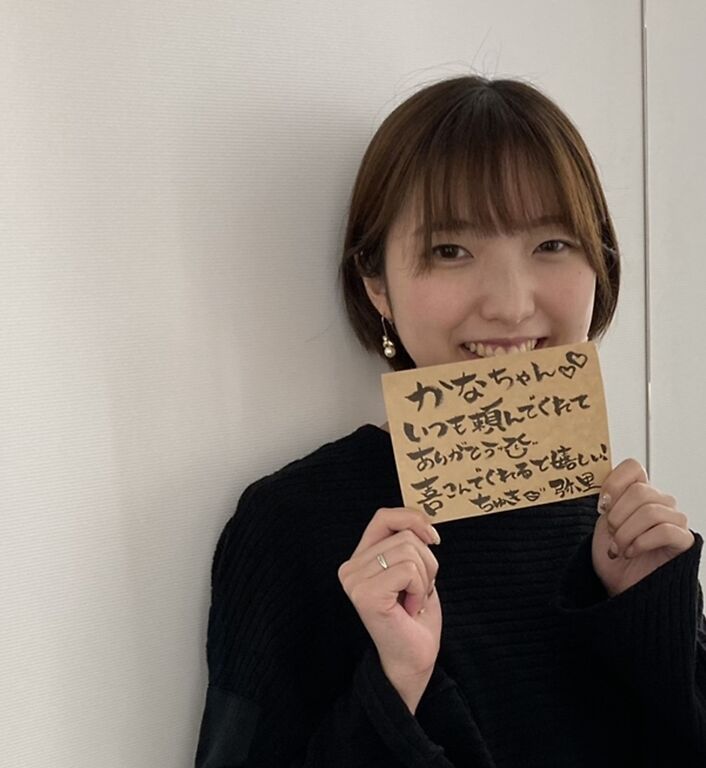 かなちゃん♡♡
いつも頼んでくれて
ありがとう
喜こんでくれると嬉しい!
ちゅき 弥里